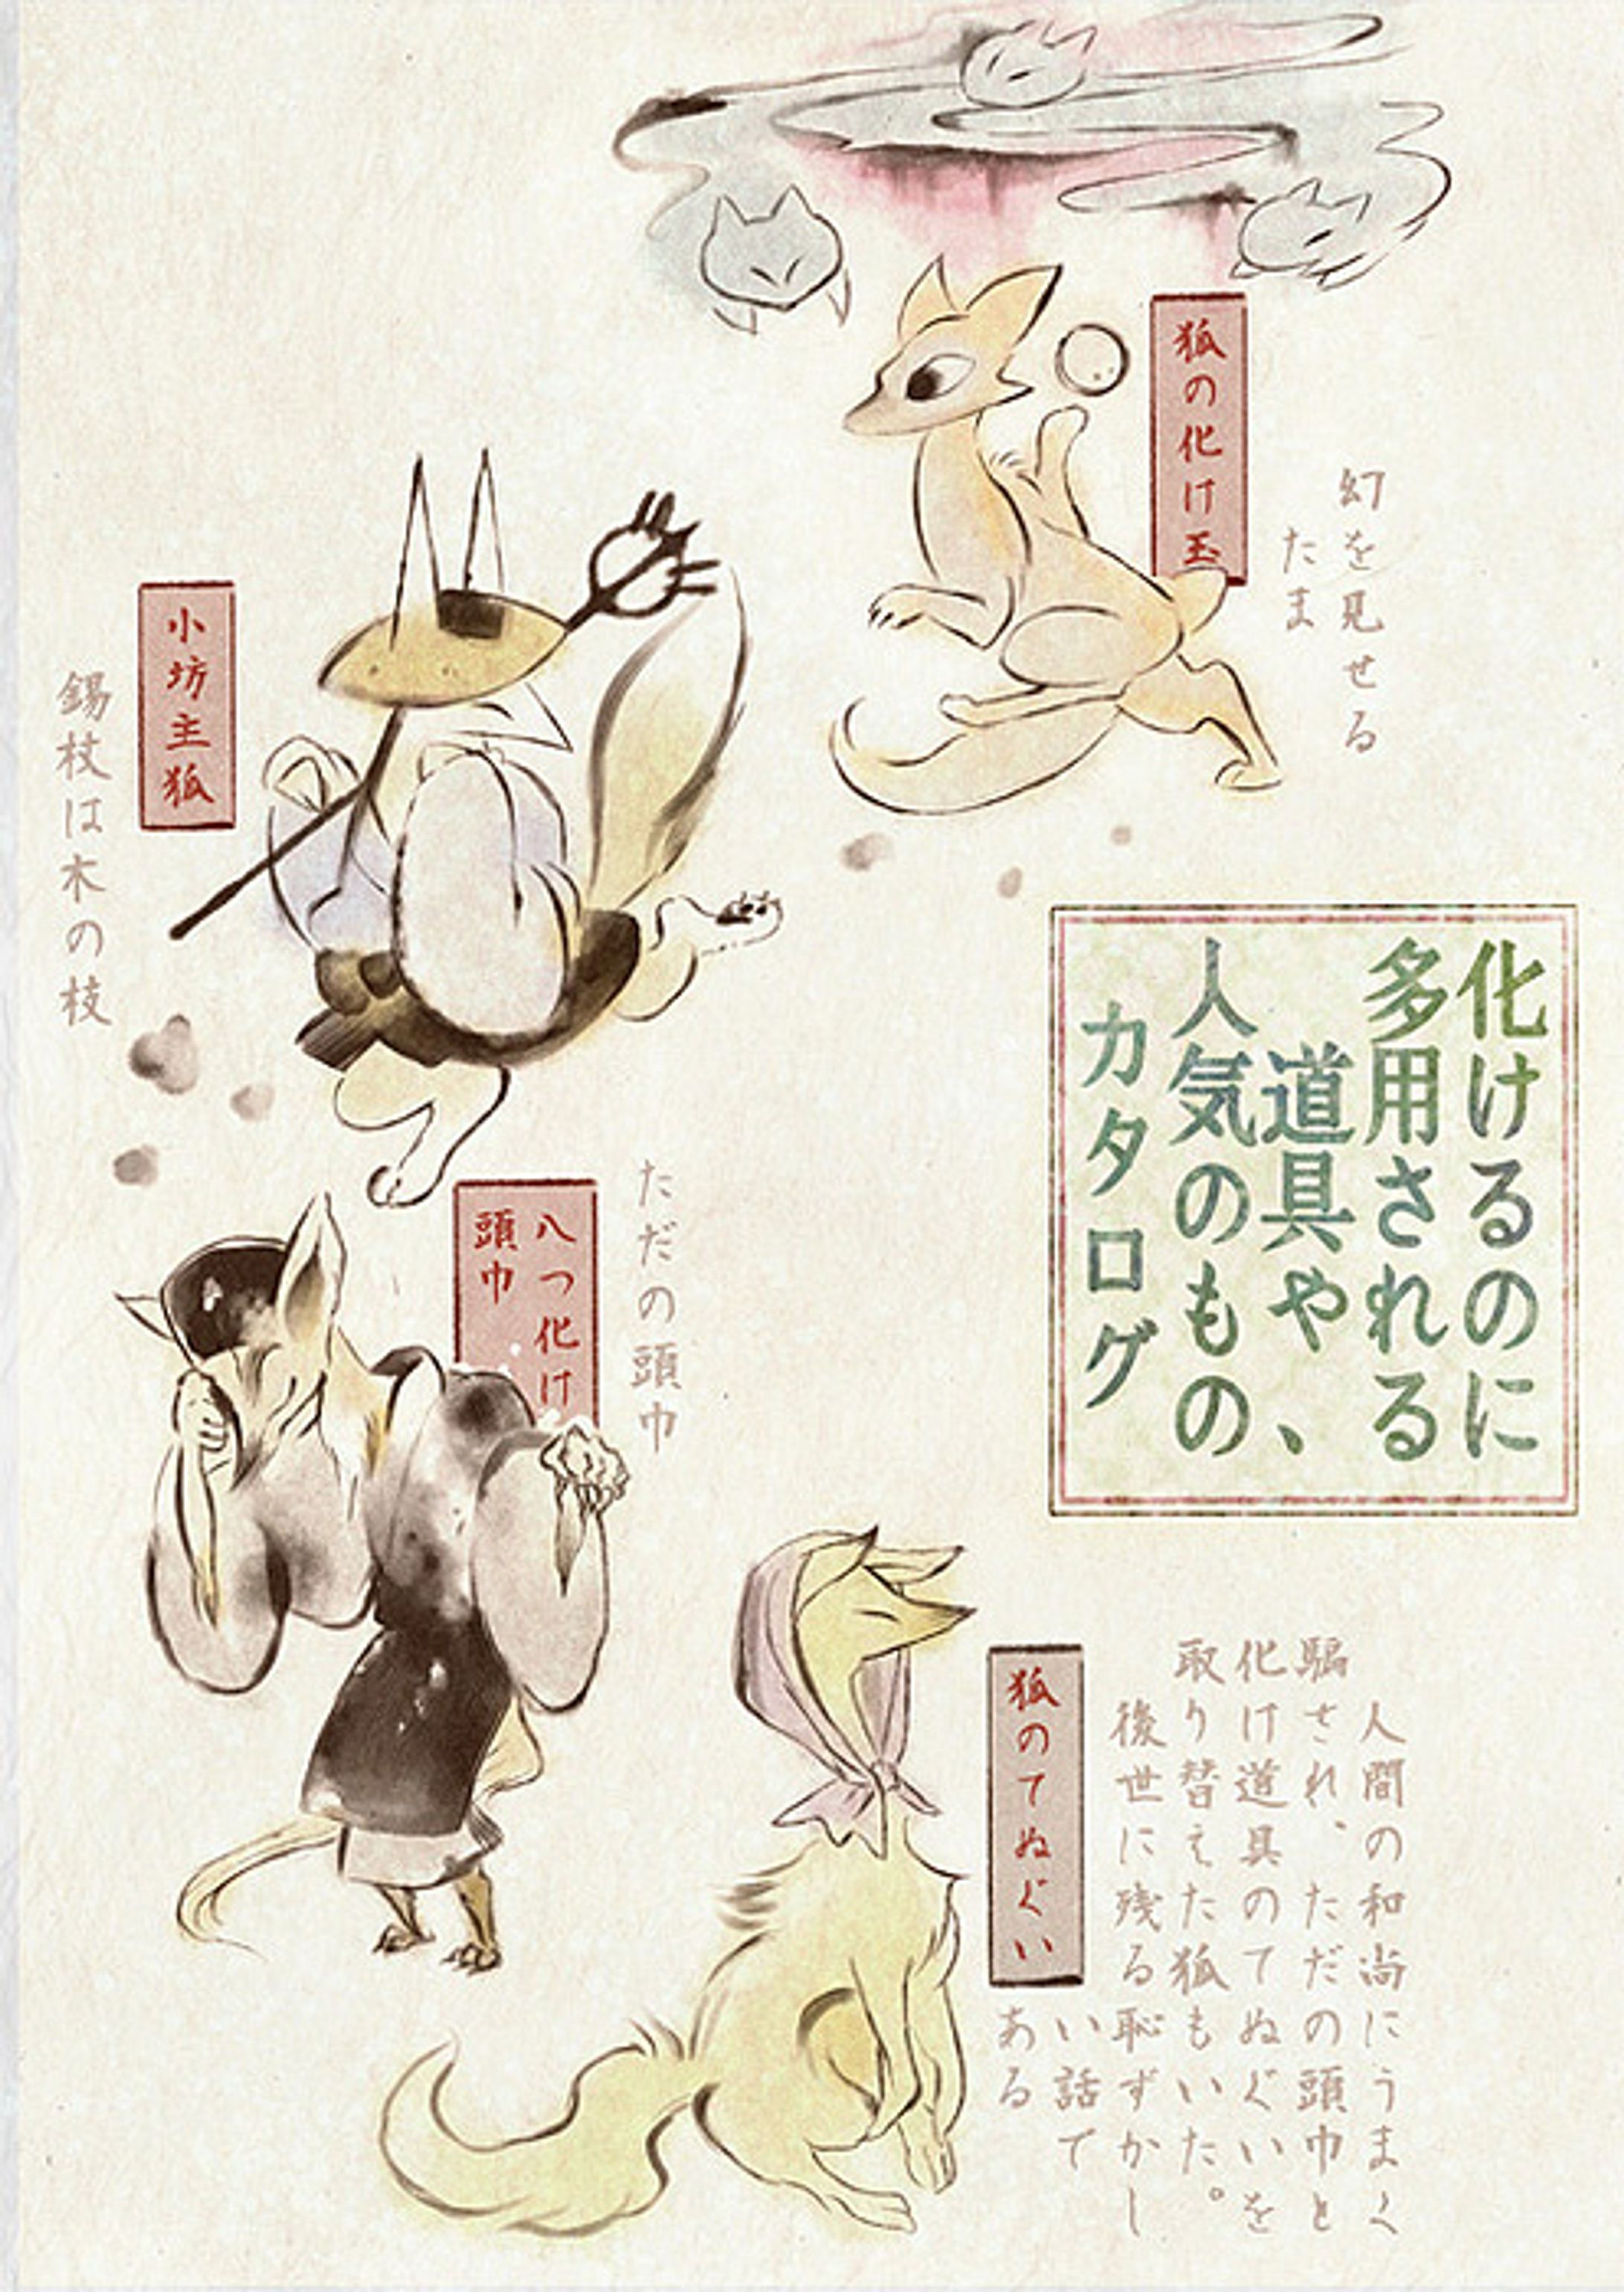 幻を見せる
たま
狐の化け玉
小坊主狐
錫杖は木の枝
化けるのに
多用される
道具や、
人気のもの
カタログ
ただの頭巾
八つ化け
頭巾
人間の和尚にうまく
騙され、ただの頭巾と
化け道具のてぬぐいを
取り替えた狐もいた。
後世に残る恥ずかし
い話で
ある
狐のてぬぐい